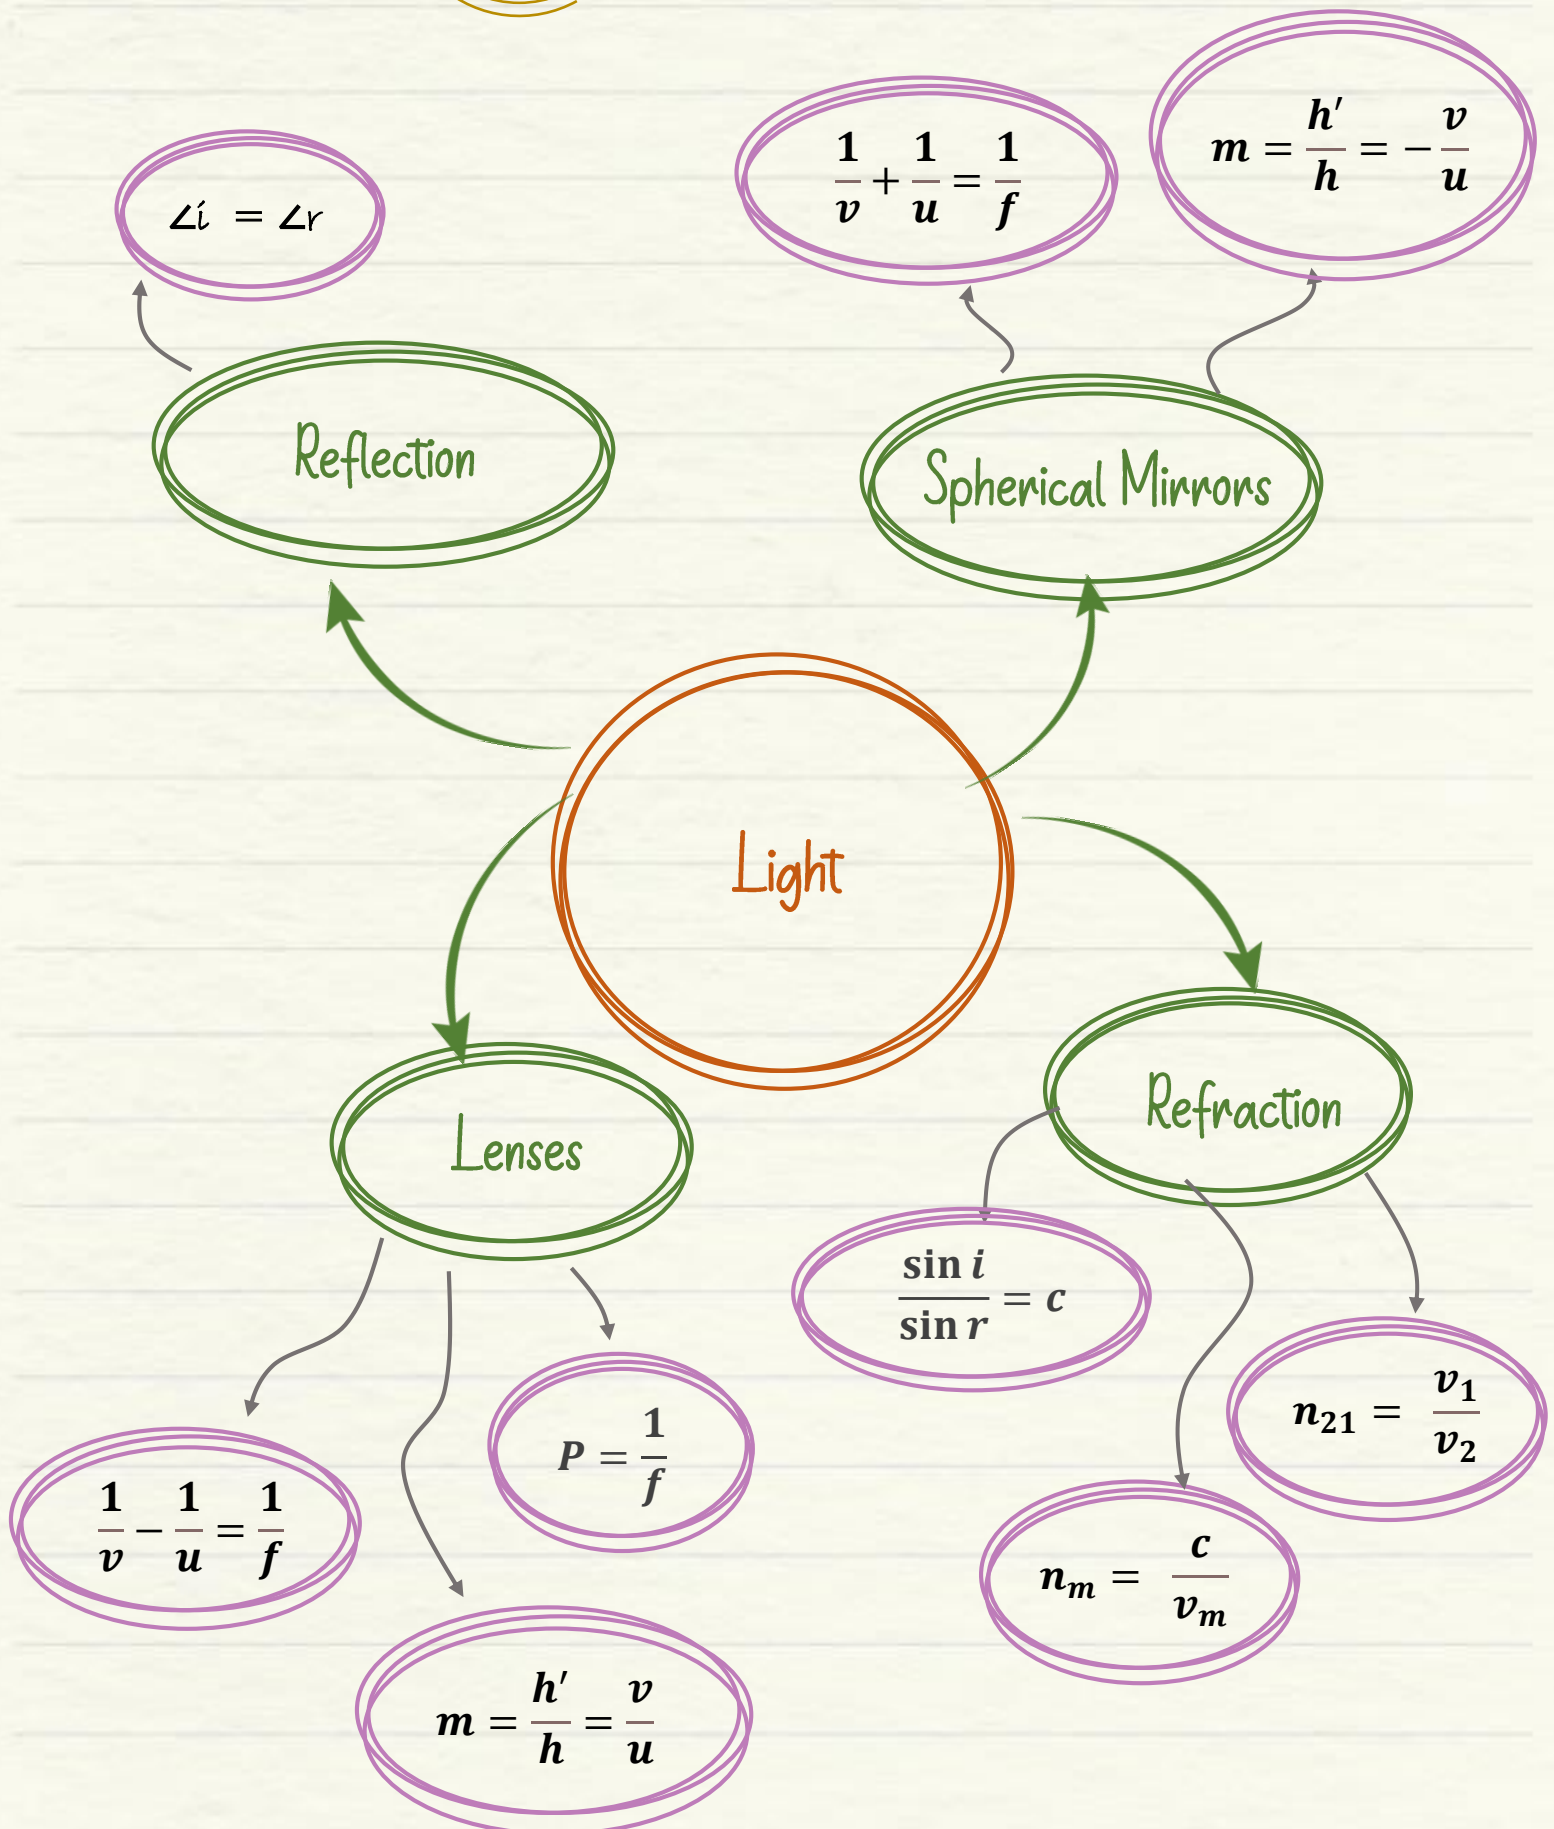 ∠i = ∠r
1/v + 1/u = 1/f
m = h′/h = −v/u
Reflection
Spherical Mirrors
Light
Lenses
Refraction
sin i/sin r = c
n₂₁ = v₁/v₂
P = 1/f
1/v − 1/u = 1/f
nₘ = c/vₘ
m = h′/h = v/u